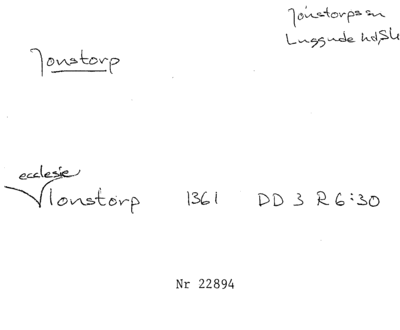 Jonstorps sn
Luggude hd, Sk
Jonstorp
ecclesie
Ionstorp 1361 DD 3 R 6:30
Nr 22894